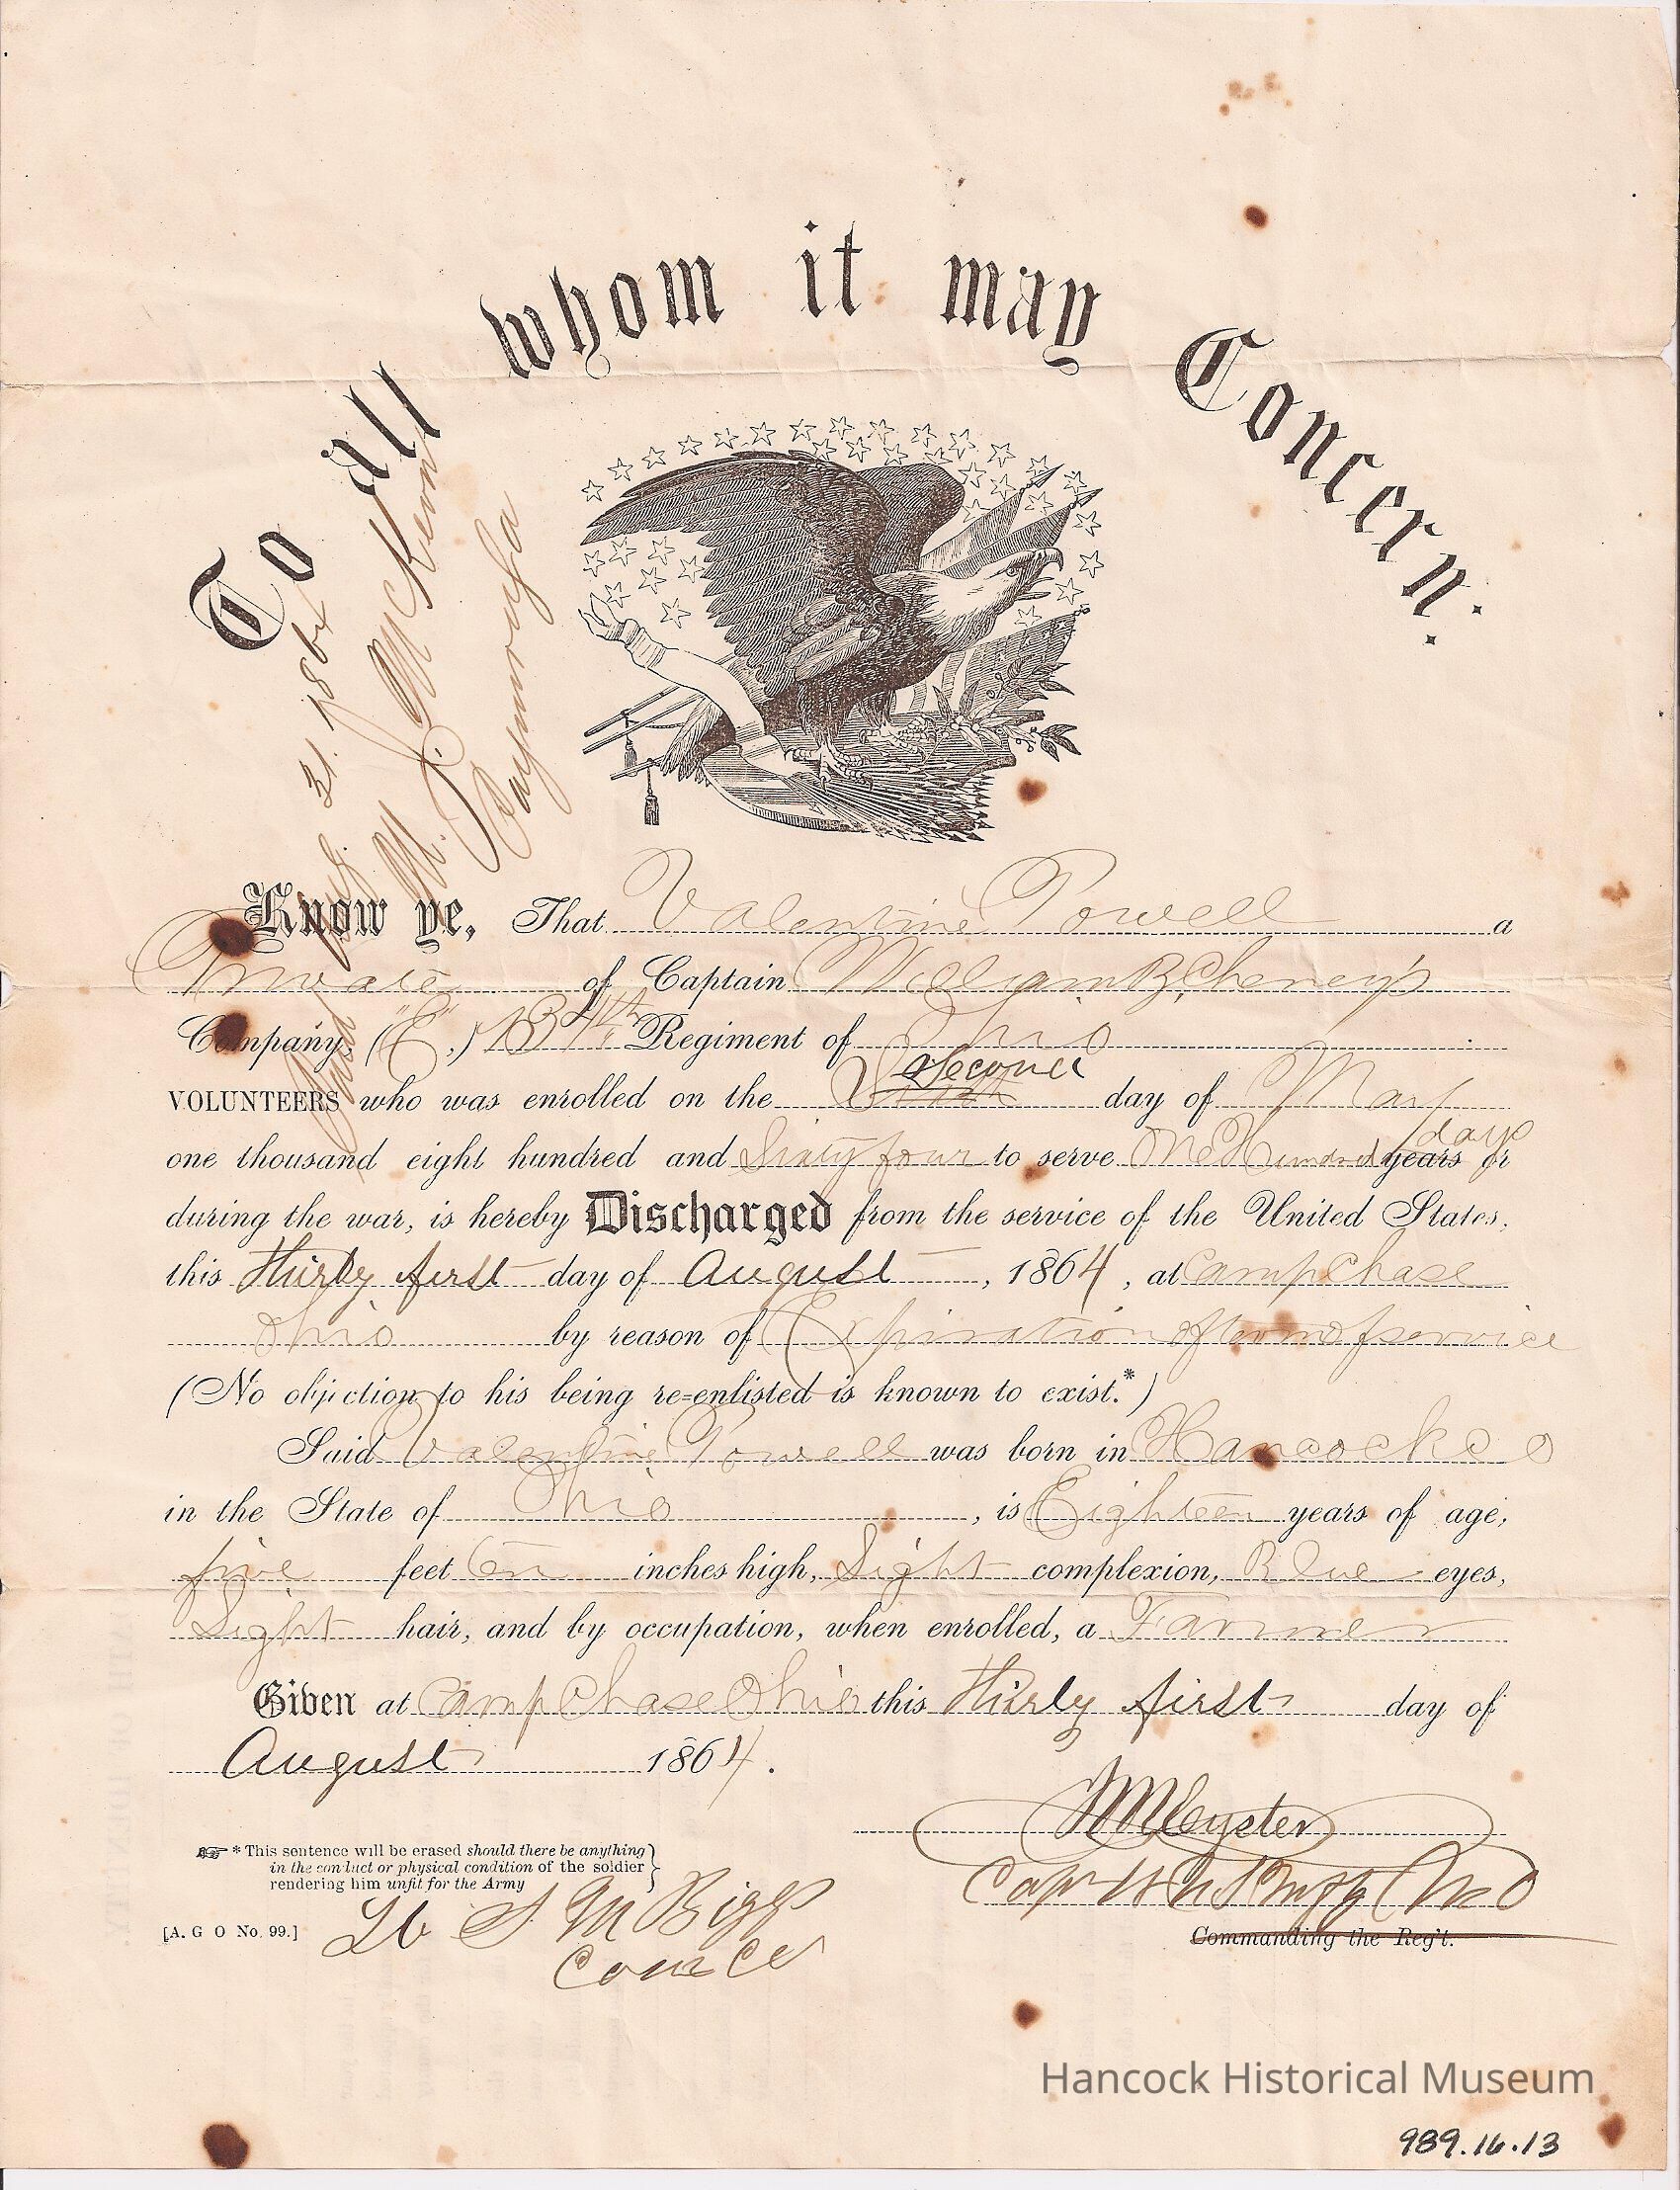 To all whom it may Concern.
Paid Aug. 31. 1864
M. L. McKenna
Paymr U.S.A
Know ye, That Valentine Powell a
Private of Captain William B Cheney's
Company, ("E",) 134th Regiment of Ohio
VOLUNTEERS who was enrolled on the Second day of May
one thousand eight hundred and Sixty four to serve One Hundred days years or
during the war, is hereby Discharged from the service of the United States,
this Thirty first day of August, 1864, at Camp Chase
Ohio by reason of Expiration of term of service
(No objection to his being re=enlisted is known to exist.*)
Said Valentine Powell was born in Hancock Co
in the State of Ohio, is Eighteen years of age,
five feet Ten inches high, Light complexion, Blue eyes,
Light hair, and by occupation, when enrolled, a Farmer
Given at Camp Chase Ohio this Thirty first day of
August 1864.
W M Eyster
Capt
Commanding the Reg't.
* This sentence will be erased should there be anything
in the conduct or physical condition of the soldier
rendering him unfit for the Army
[A. G O No. 99.]
Lt S M Biggs
Com Co
Hancock Historical Museum
989.16.13